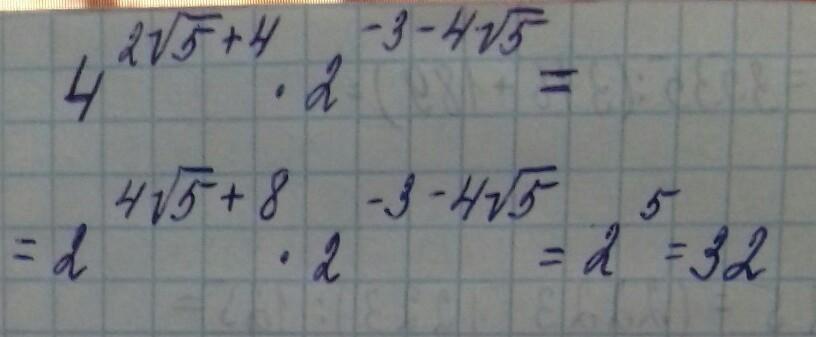 4^(2√5+4) · 2^(-3-4√5) =
= 2^(4√5+8) · 2^(-3-4√5) = 2^5 = 32